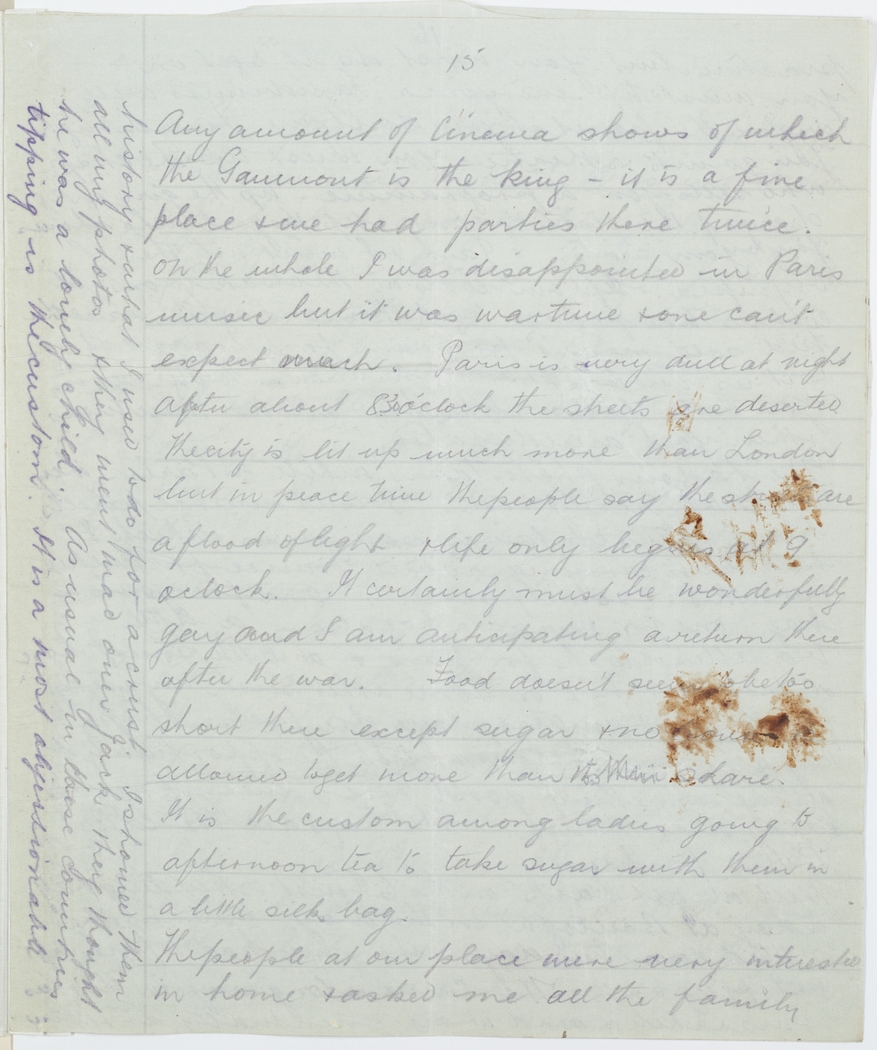 15
Any amount of Cinema shows of which
the Gaumont is the king - it is a fine
place & we had parties there twice.
On the whole I was disappointed in Paris
music but it was wartime & one can't
expect much. Paris is very dull at night
after about 8.30 o'clock the streets are deserted
The city is lit up much more than London
but in peace time the people say the streets are
a flood of light & life only begins at 9
oclock. It certainly must be wonderfully
gay and I am anticipating a return there
after the war. Food doesn't seem to be too
short there except sugar & no is
allowed to get more than their share.
It is the custom among ladies going to
afternoon tea to take sugar with them in
a little silk bag.
The people at our place were very interested
in home & asked me all the family
history & what I used to do for a crust. I showed them
all my photos & they went mad over Jack they thought
he was a lovely child. As usual in these countries
tipping is the custom. It is a most objectionable